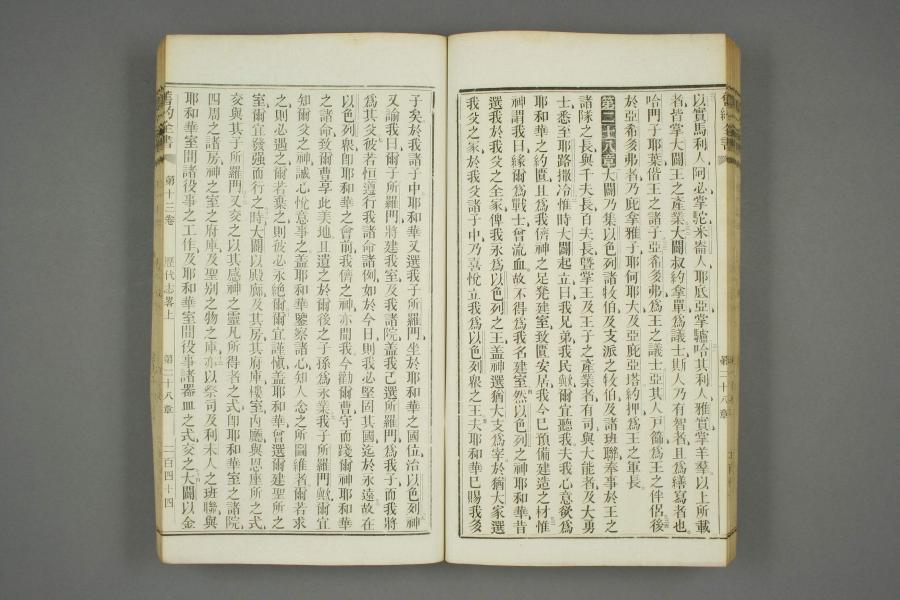 以實馬利人阿必掌駝米崙人耶底亞掌驢哈其利人雅實掌羊羣以上所載
者皆掌大闢王之產業大闢叔約拿單為議士斯人乃有智者且為繕寫者也
哈門子耶葉偕王之諸子亞希多弗為王之議士亞其人戶篩為王之伴侶後
於亞希多弗者乃庇拿雅子耶何耶大及亞庇亞塔約押為王之軍長
第二十八章大闢乃集以色列諸牧伯及支派之牧伯及諸班聯奉事於王之
諸隊之長與千夫長百夫長曁掌王及王子之產業者有司與大能者及大勇
士悉至耶路撒冷惟時大闢起立曰我兄弟我民歟爾宜聽我夫我心意欲為
耶和華之約匱且為我儕神之足凳建室致匱安居我今已預備建造之材惟
神謂我曰緣爾為戰士曾流血故不得為我名建室然以色列之神耶和華昔
選我於我父之全家俾我永為以色列之王蓋神選猶大支為宰於猶大家選
我父之家於我父諸子中乃喜悅立我為以色列衆之王夫耶和華已賜我多
子矣於我諸子中耶和華又選我子所羅門坐於耶和華之國位治以色列神
又諭我曰爾子所羅門將建我室及我諸院蓋我已選所羅門為我子而我將
為其父彼若恒遵行我諸命諸例如於今日則我必堅固其國迄於永遠故在
以色列衆卽耶和華之會前我儕之神亦聞我今勸爾曹守而踐爾神耶和華
之諸命致爾曹享此美地且遺之於爾後之子孫為永業我子所羅門歟爾宜
知爾父之神誠心悅意事之蓋耶和華鑒察諸心知人念之所圖維者爾若求
之則必遇之爾若棄之則彼必永絕爾爾宜謹愼蓋耶和華曾選爾建聖所之
室爾宜發强而行之時大闢以殿廊及其房其府庫樓室內廳與恩座所之式
交與其子所羅門又交之以其感神之靈凡所得者之式卽耶和華室之諸院
四周之諸房神之室之府庫及聖別之物之庫亦以祭司及利未人之班聯與
耶和華室間諸役事之工作及耶和華室間役事諸器皿之式交之大闢以金
舊約全書 第十三卷 歷代志畧上 第二十八章 一百四十四